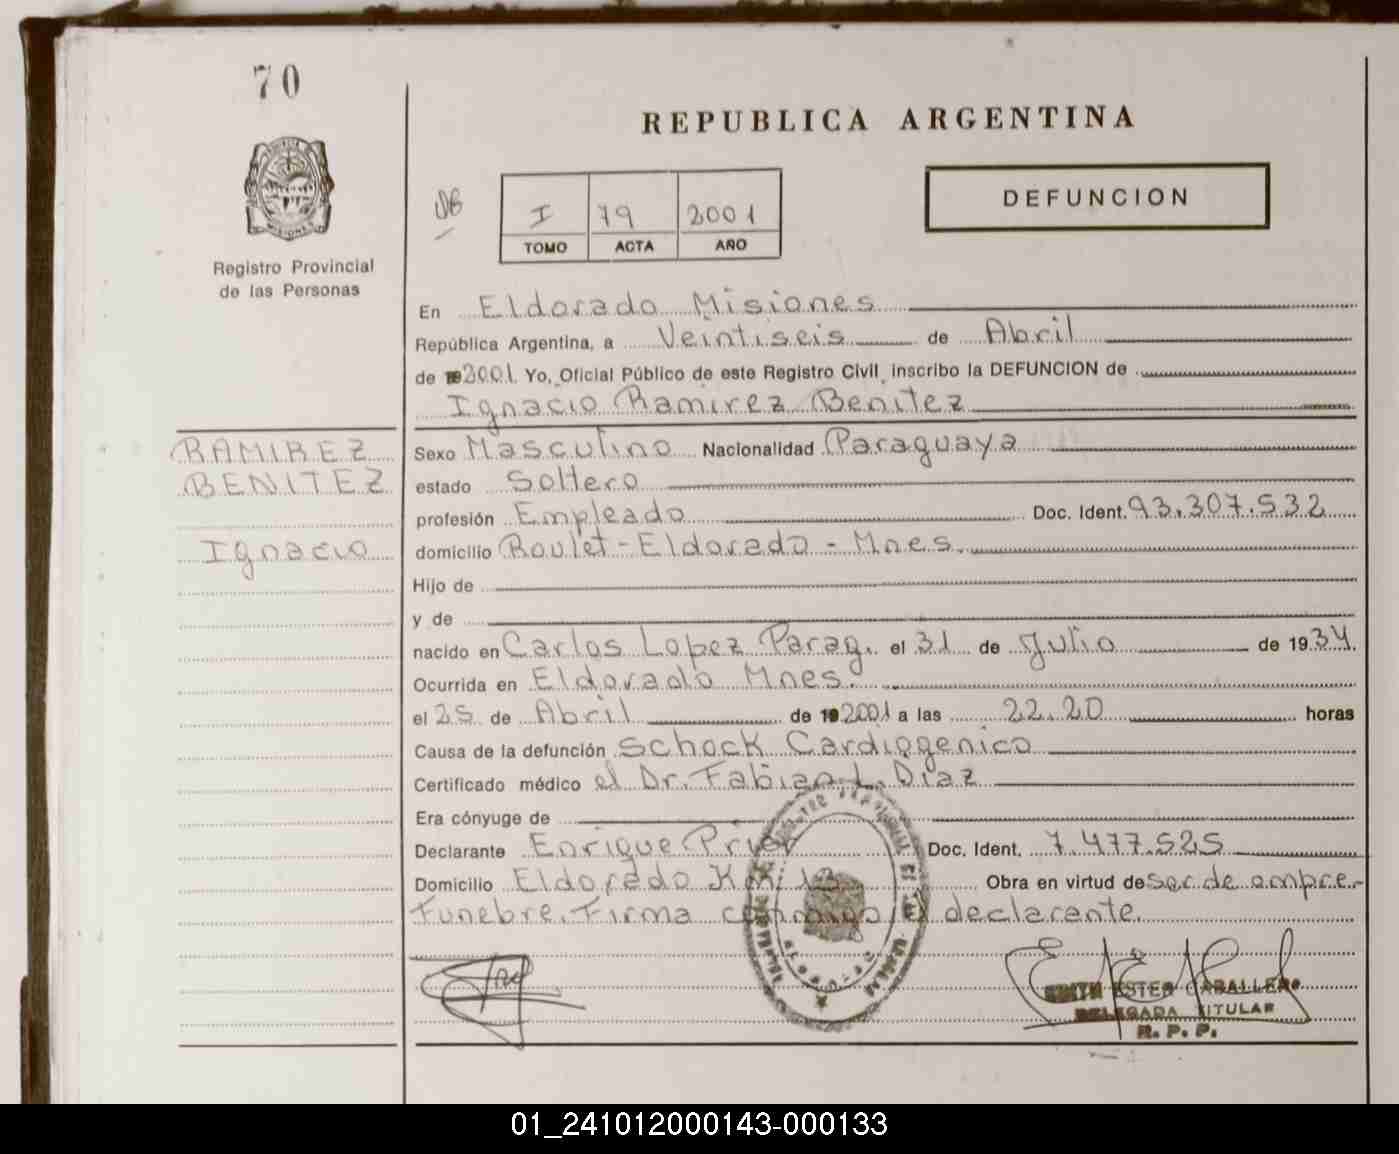 70
REPUBLICA ARGENTINA
DEFUNCION
I 79 2001
TOMO ACTA AÑO
MISIONES
Registro Provincial
de las Personas
En Eldorado Misiones
República Argentina, a Veintiseis de Abril
de 2001 Yo, Oficial Público de este Registro Civil, inscribo la DEFUNCION de
Ignacio Ramirez Benitez
RAMIREZ
BENITEZ
Ignacio
Sexo Masculino Nacionalidad Paraguaya
estado Soltero
profesión Empleado Doc. Ident. 93.307.532
domicilio Roulet - Eldorado - Mnes.
Hijo de
y de
nacido en Carlos Lopez Parag. el 31 de Julio de 1934.
Ocurrida en Eldorado Mnes.
el 25 de Abril de 2001 a las 22.20 horas
Causa de la defunción Schock Cardiogenico
Certificado médico el Dr. Fabian L. Diaz
Era cónyuge de
Declarante Enrique Doc. Ident. 7.477.525
Domicilio Eldorado Km. Obra en virtud de ser de empre-
Funebre. Firma conmigo el declarante.
EDITH ESTER CABALLERO
DELEGADA TITULAR
R. P. P.
01_241012000143-000133